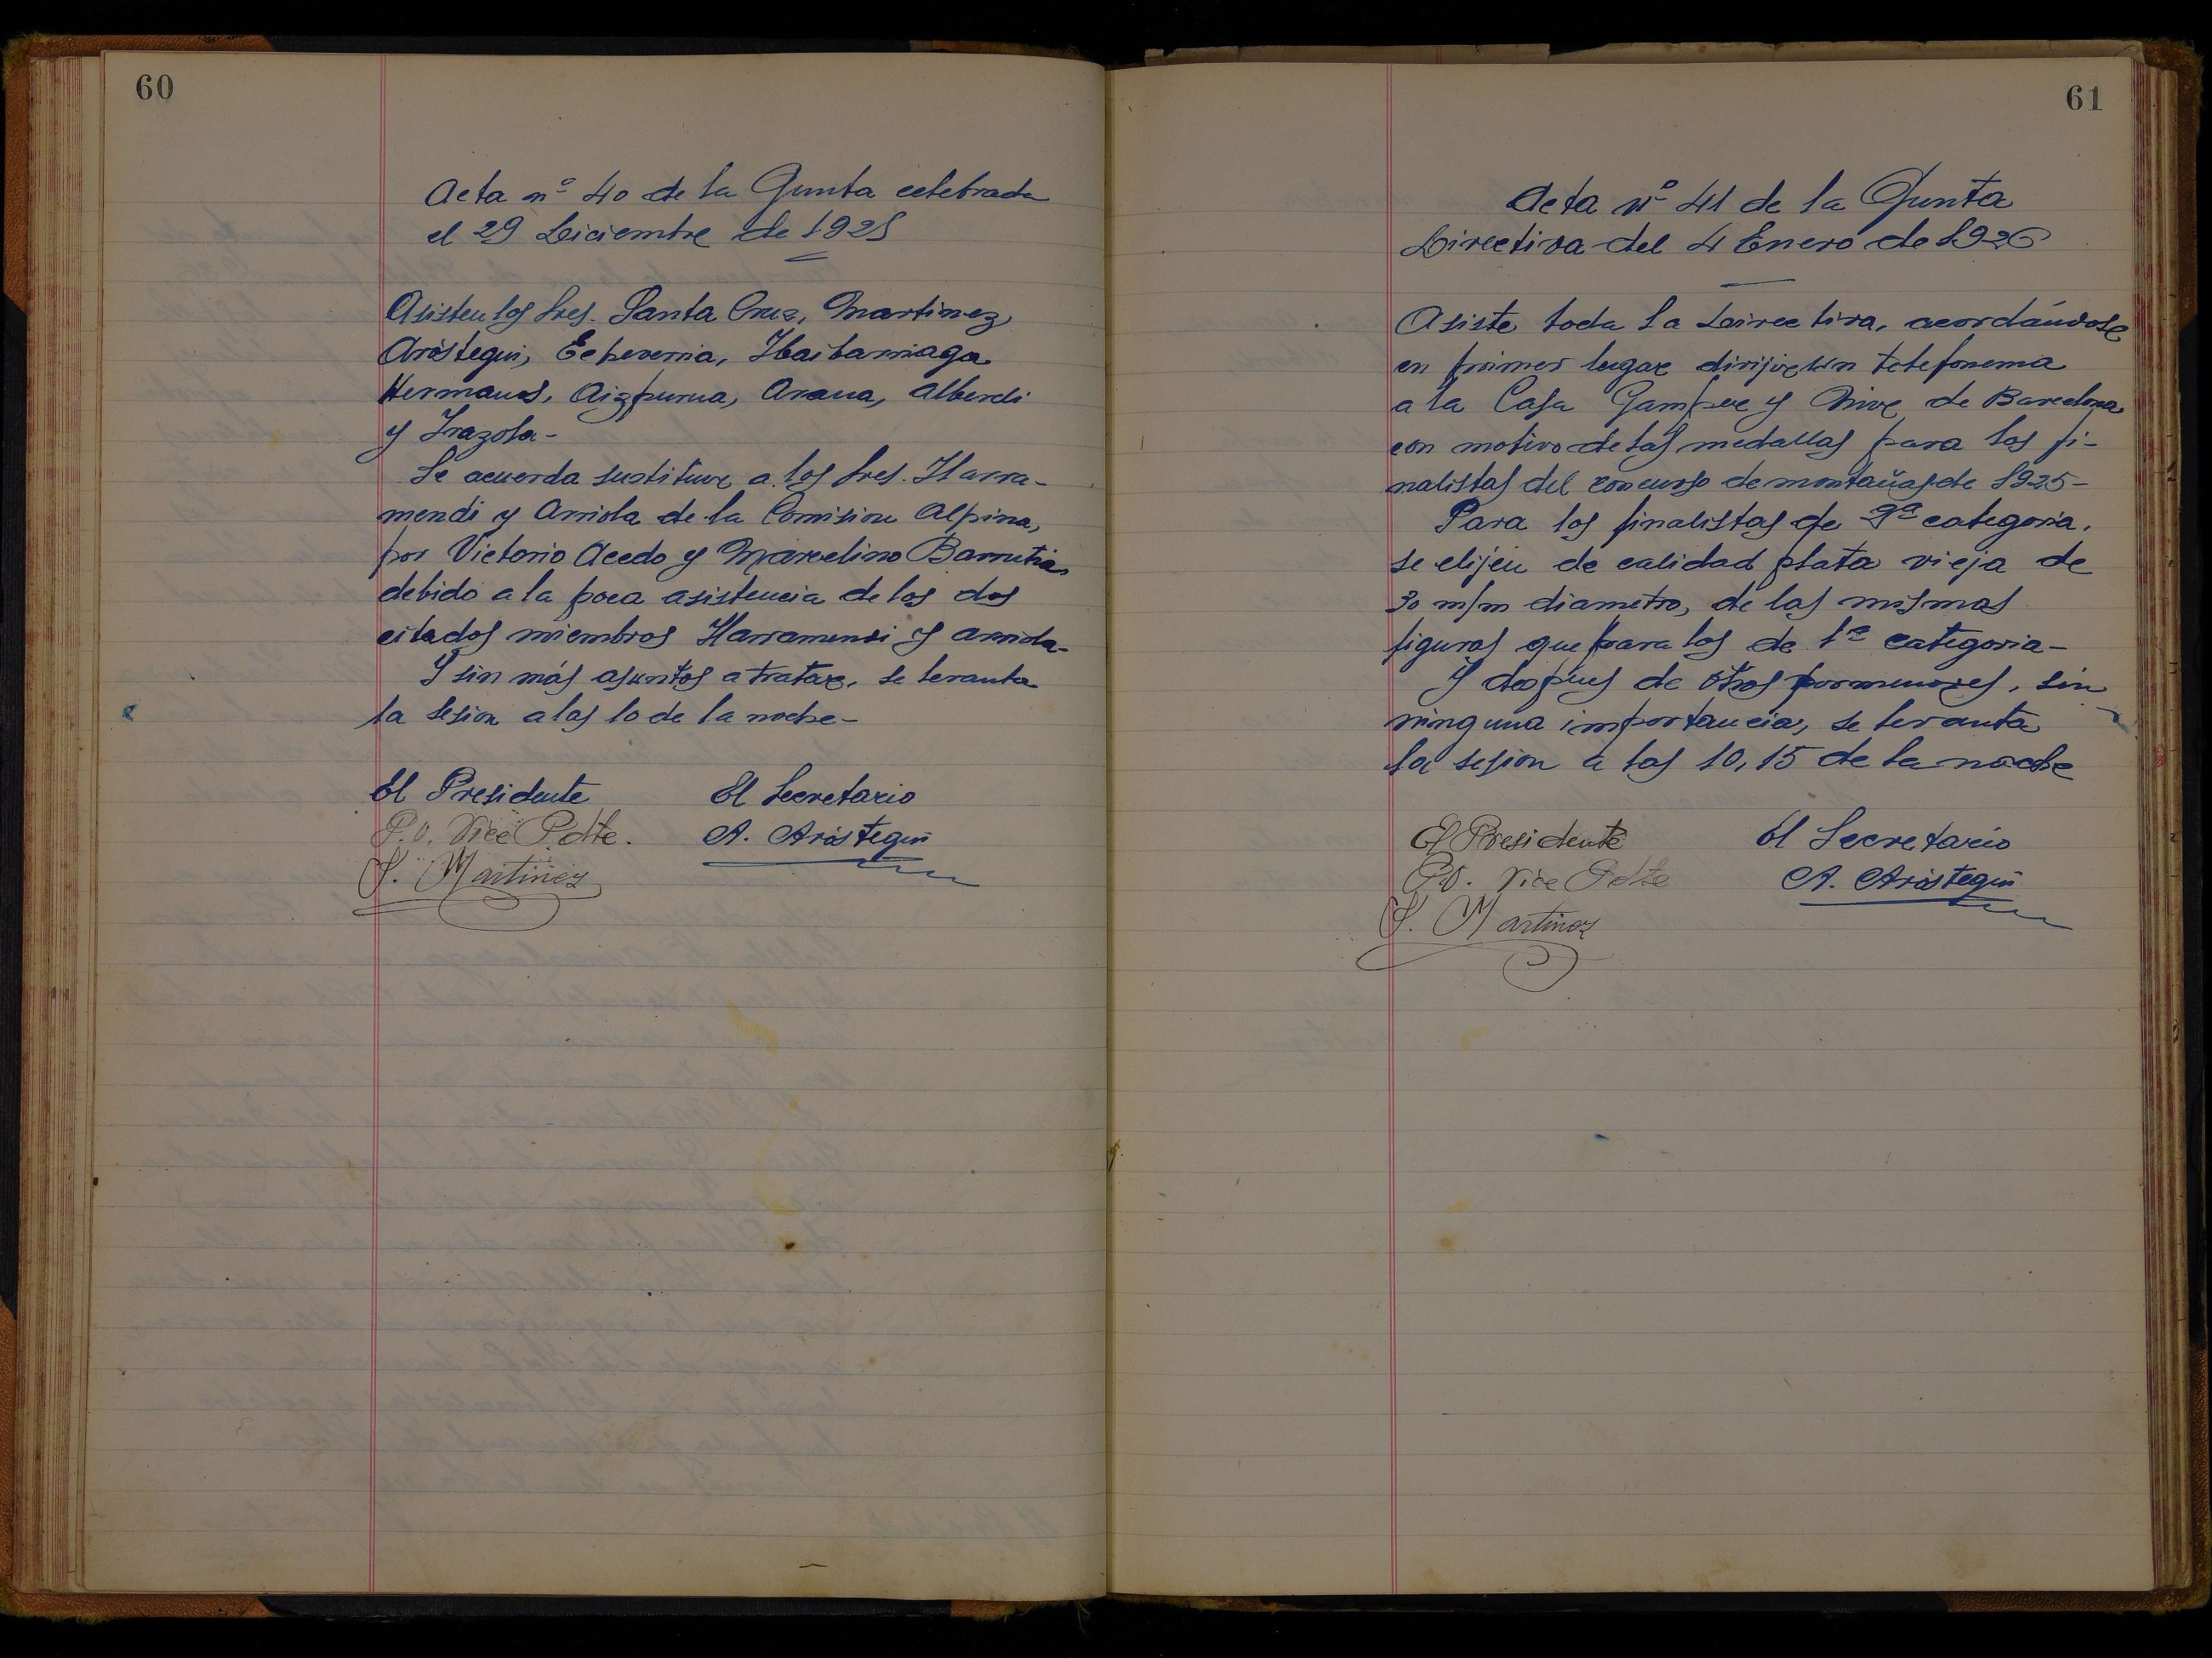 60
Acta nº 40 de la Junta celebrada
el 29 Diciembre de 1925
Asisten los Sres. Santa Cruz, Martinez,
Aróstegui, Echeverria, Ibaibarriaga
Hermanos, Aizpurua, Arana, Alberdi
y Irazola -
Se acuerda sustituir a los Sres. Ilarra-
mendi y Arriola de la Comision Alpina,
por Victorio Acedo y Marcelino Barrutia,
debido a la poca asistencia de los dos
citados miembros Ilarramendi y Arriola -
Y sin más asuntos a tratar, se levanta
la sesion a las 10 de la noche -
El Presidente El Secretario
P.O. Vice Pdte. A. Aróstegui
S. Martinez
61
Acta nº 41 de la Junta
Directiva del 4 Enero de 1926
Asiste toda la Directiva, acordándose
en primer lugar dirijir un telefonema
a la Casa de Barcelona
con motivo de las medallas para los fi-
nalistas del concurso de montañas de 1925 -
Para los finalistas de categoria,
se elijen de calidad plata vieja de
30 m/m diametro, de las mismas
figuras que para los de 1ª categoria -
Y despues de otros pormenores, sin
ninguna importancia, se levanta
la sesion a las 10,15 de la noche
El Presidente El Secretario
P.O. Vice Pdte A. Aróstegui
S. Martinez